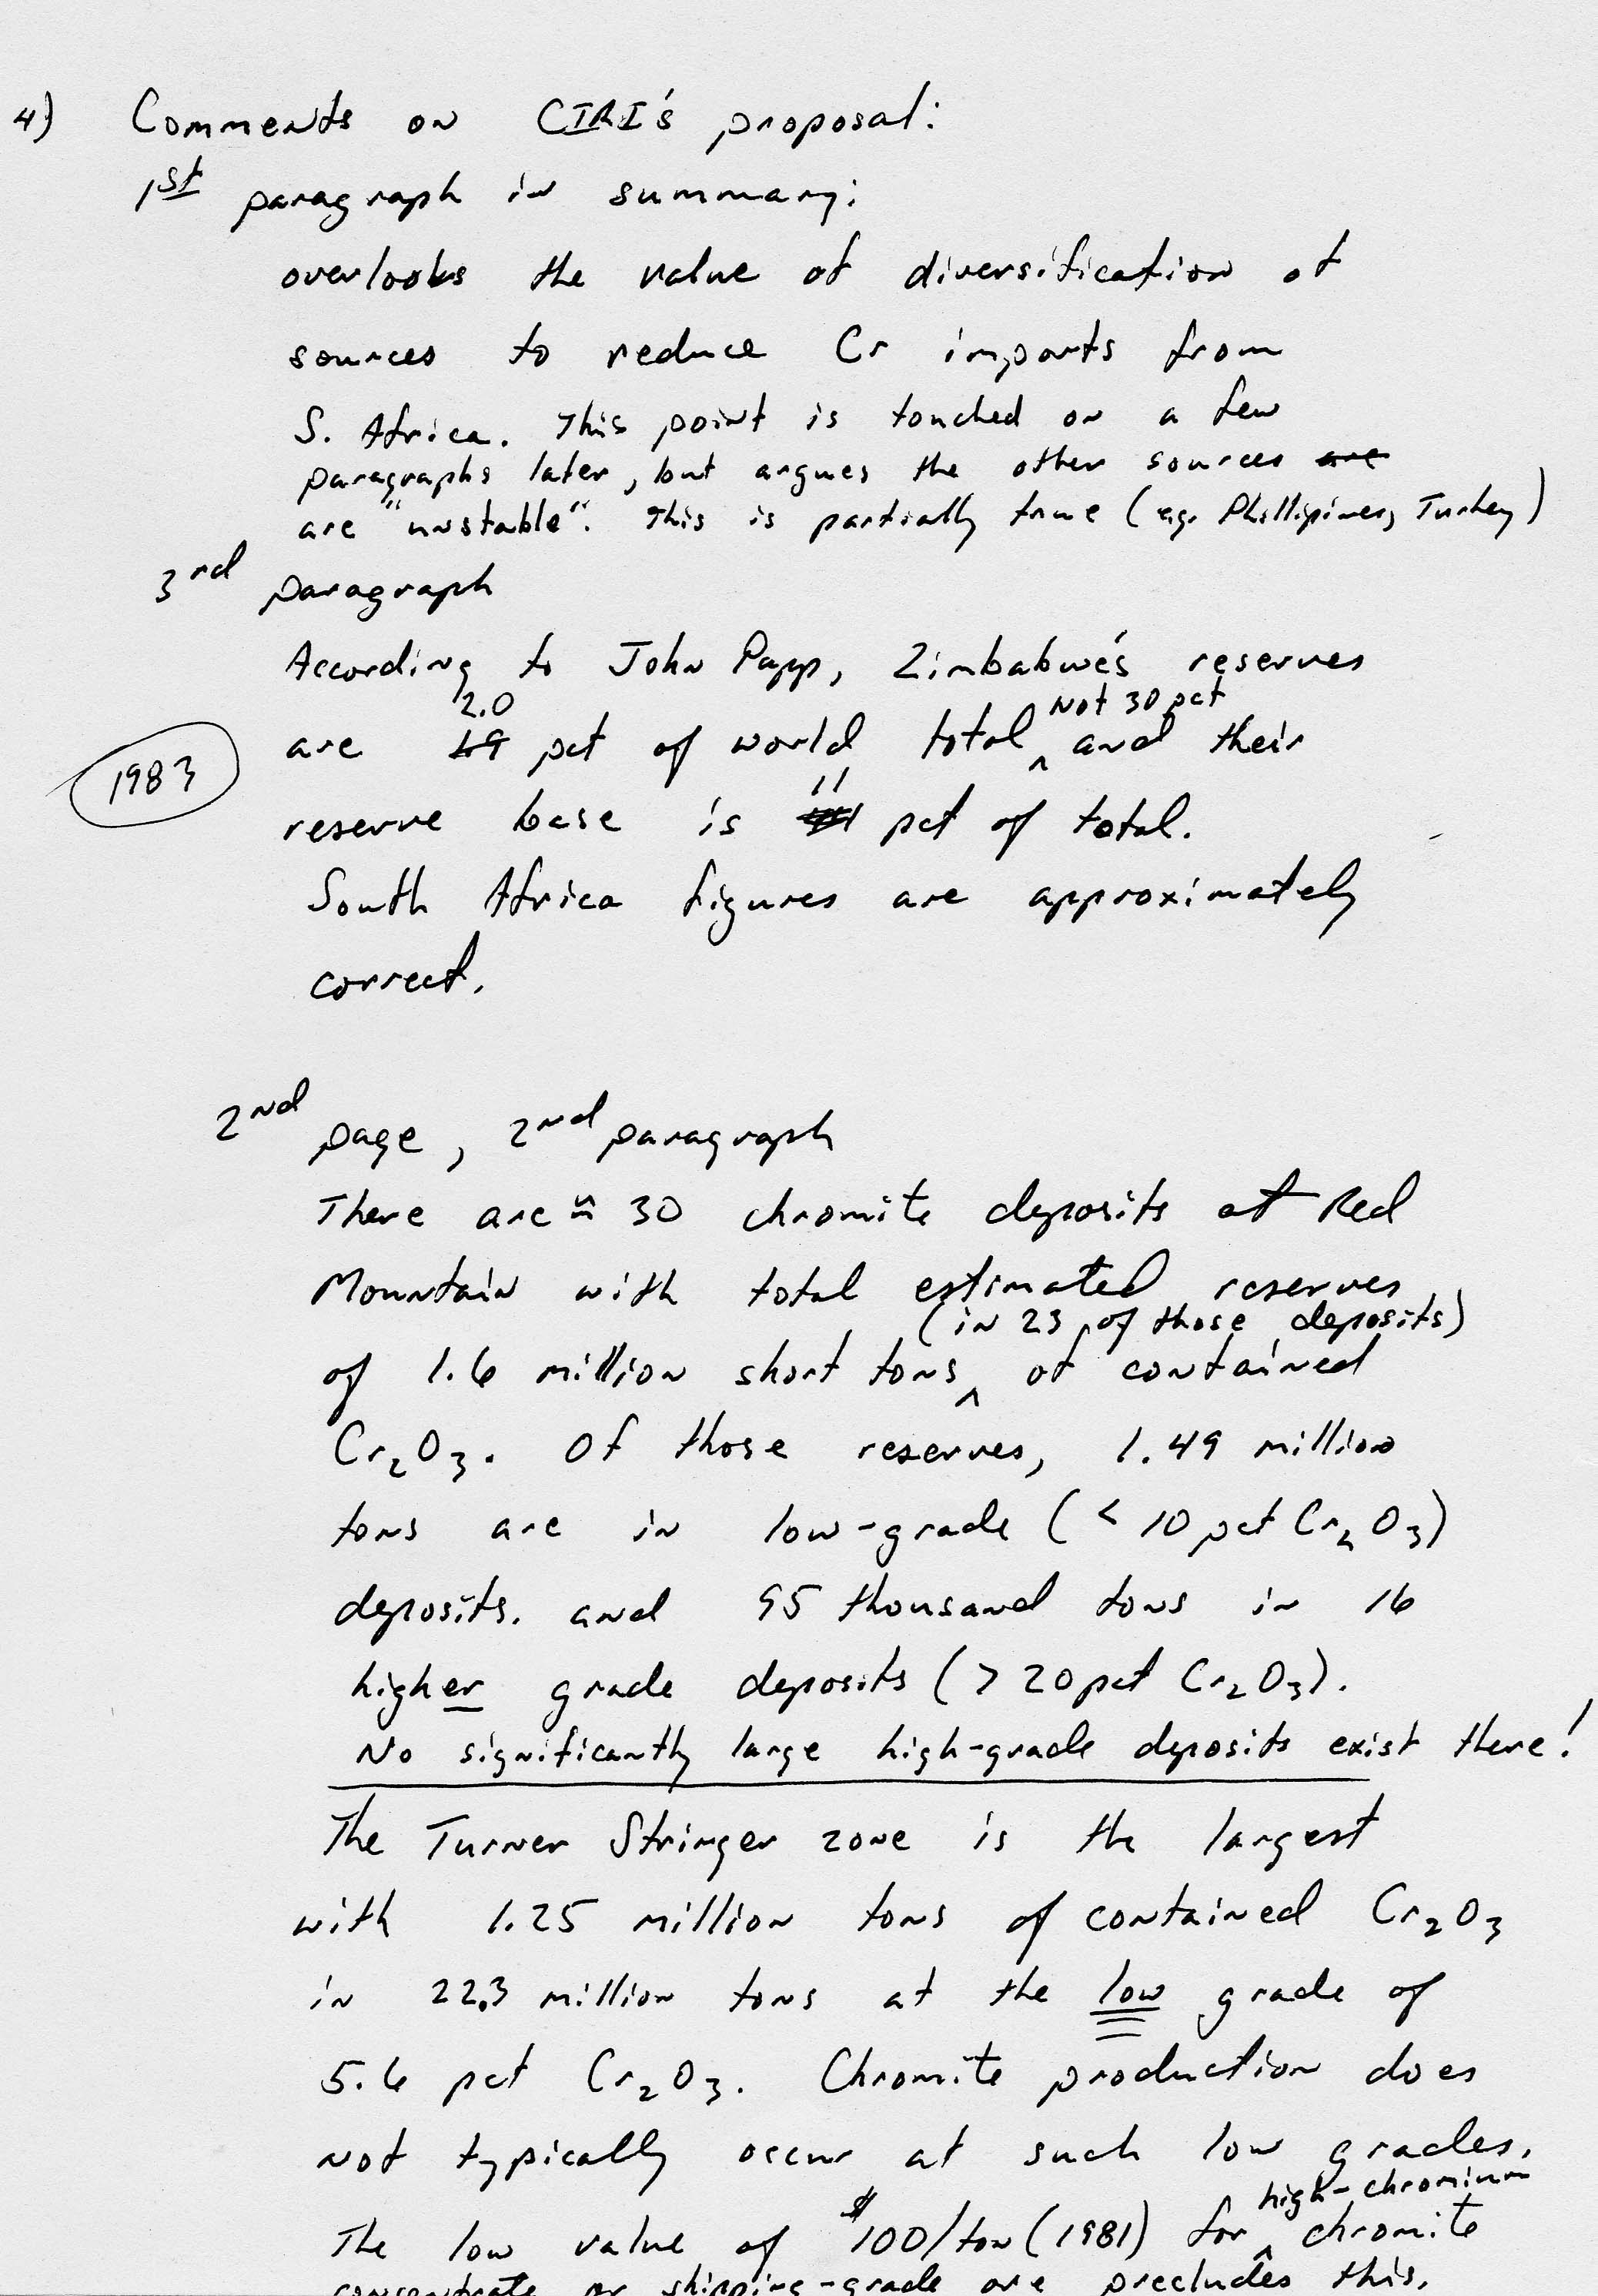 4) Comments on CIRI's proposal:
1st paragraph in summary:
overlooks the value of diversification of
sources to reduce Cr imports from
S. Africa. This point is touched on a few
paragraphs later, but argues the other sources are
are "unstable". This is partially true (e.g. Phillipines, Turkey)
3rd paragraph
According to John Papp, Zimbabwe's reserves
2.0 Not 30 pct
are 19 pct of world total ^ and their
1983
11
reserve base is pct of total.
South Africa figures are approximately
correct.
2nd page, 2nd paragraph
There are ≈ 30 chromite deposits at Red
Mountain with total estimated reserves
(in 23 of those deposits)
of 1.6 million short tons ^ of contained
Cr2O3. Of those reserves, 1.49 million
tons are in low-grade (< 10 pct Cr2O3)
deposits. and 95 thousand tons in 16
higher grade deposits (> 20 pct Cr2O3).
No significantly large high-grade deposits exist there!
The Turner Stringer zone is the largest
with 1.25 million tons of contained Cr2O3
in 22.3 million tons at the low grade of
5.6 pct Cr2O3. Chromite production does
not typically occur at such low grades.
high-chromium
The low value of $100/ton (1981) for ^ chromite
concentrate or shipping-grade ore precludes this.